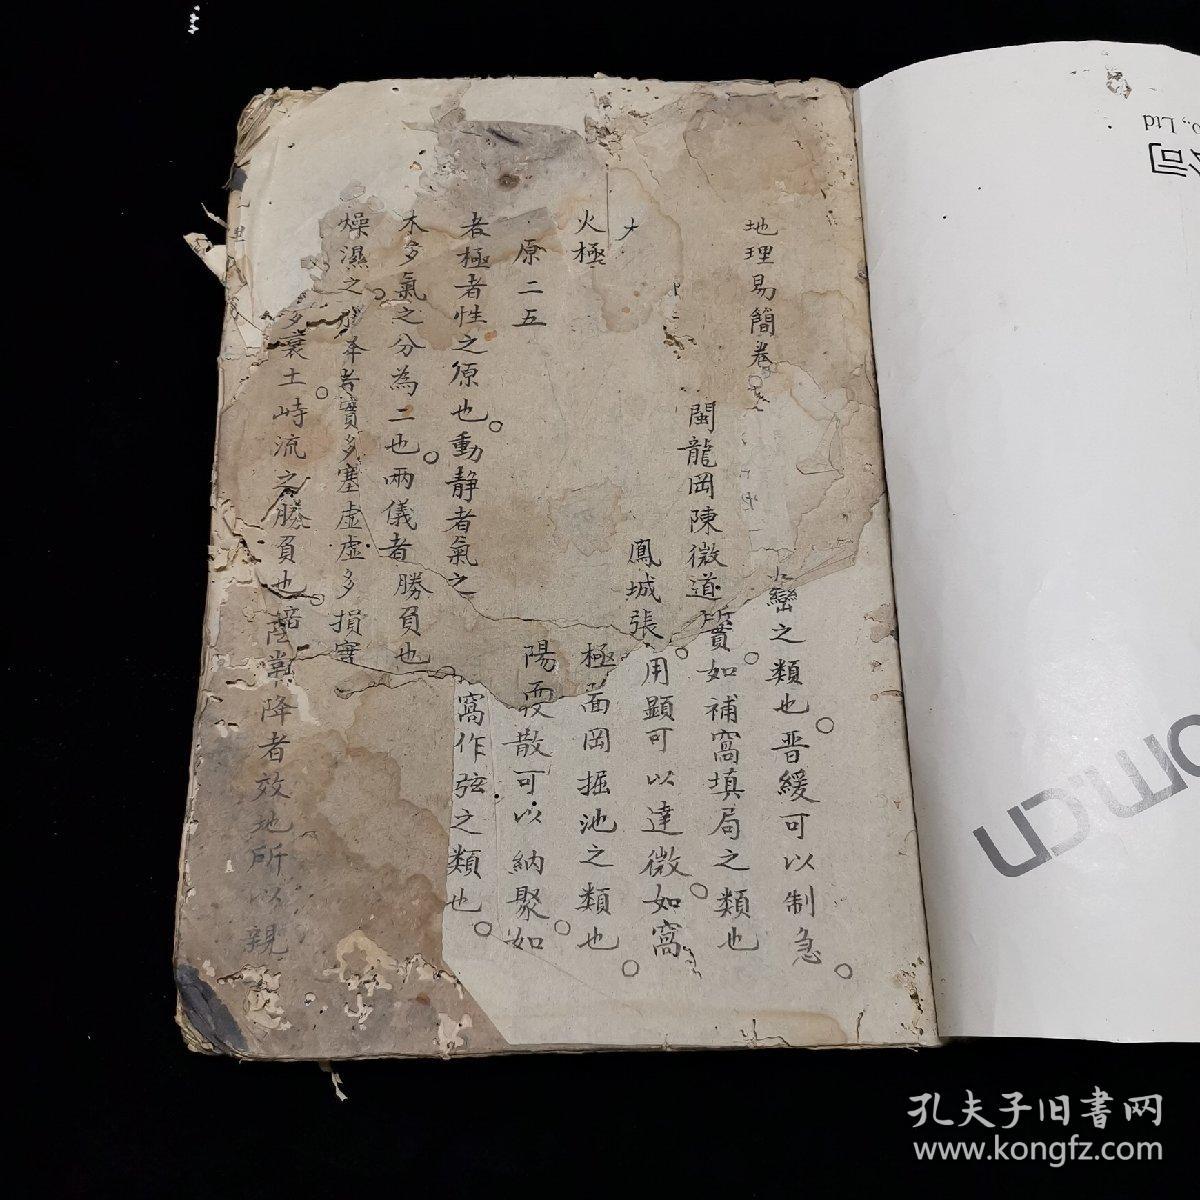 地理易簡卷
巒之類也晋緩可以制急
閩龍岡陳微道
實如補窩填局之類也
鳳城張
用顕可以達微如窩
火極
極菑岡掘池之類也
原二五
陽耎散可以納聚如
者極者性之原也動静者氣之
窩作弦之類也
木多氣之分為二也兩儀者勝負也
燥濕之
者實多塞虚虚多損實
襄土峙流之勝負也
降者效地所以親
公司
o., Ltd
om.cn
孔夫子旧书网
www.kongfz.com